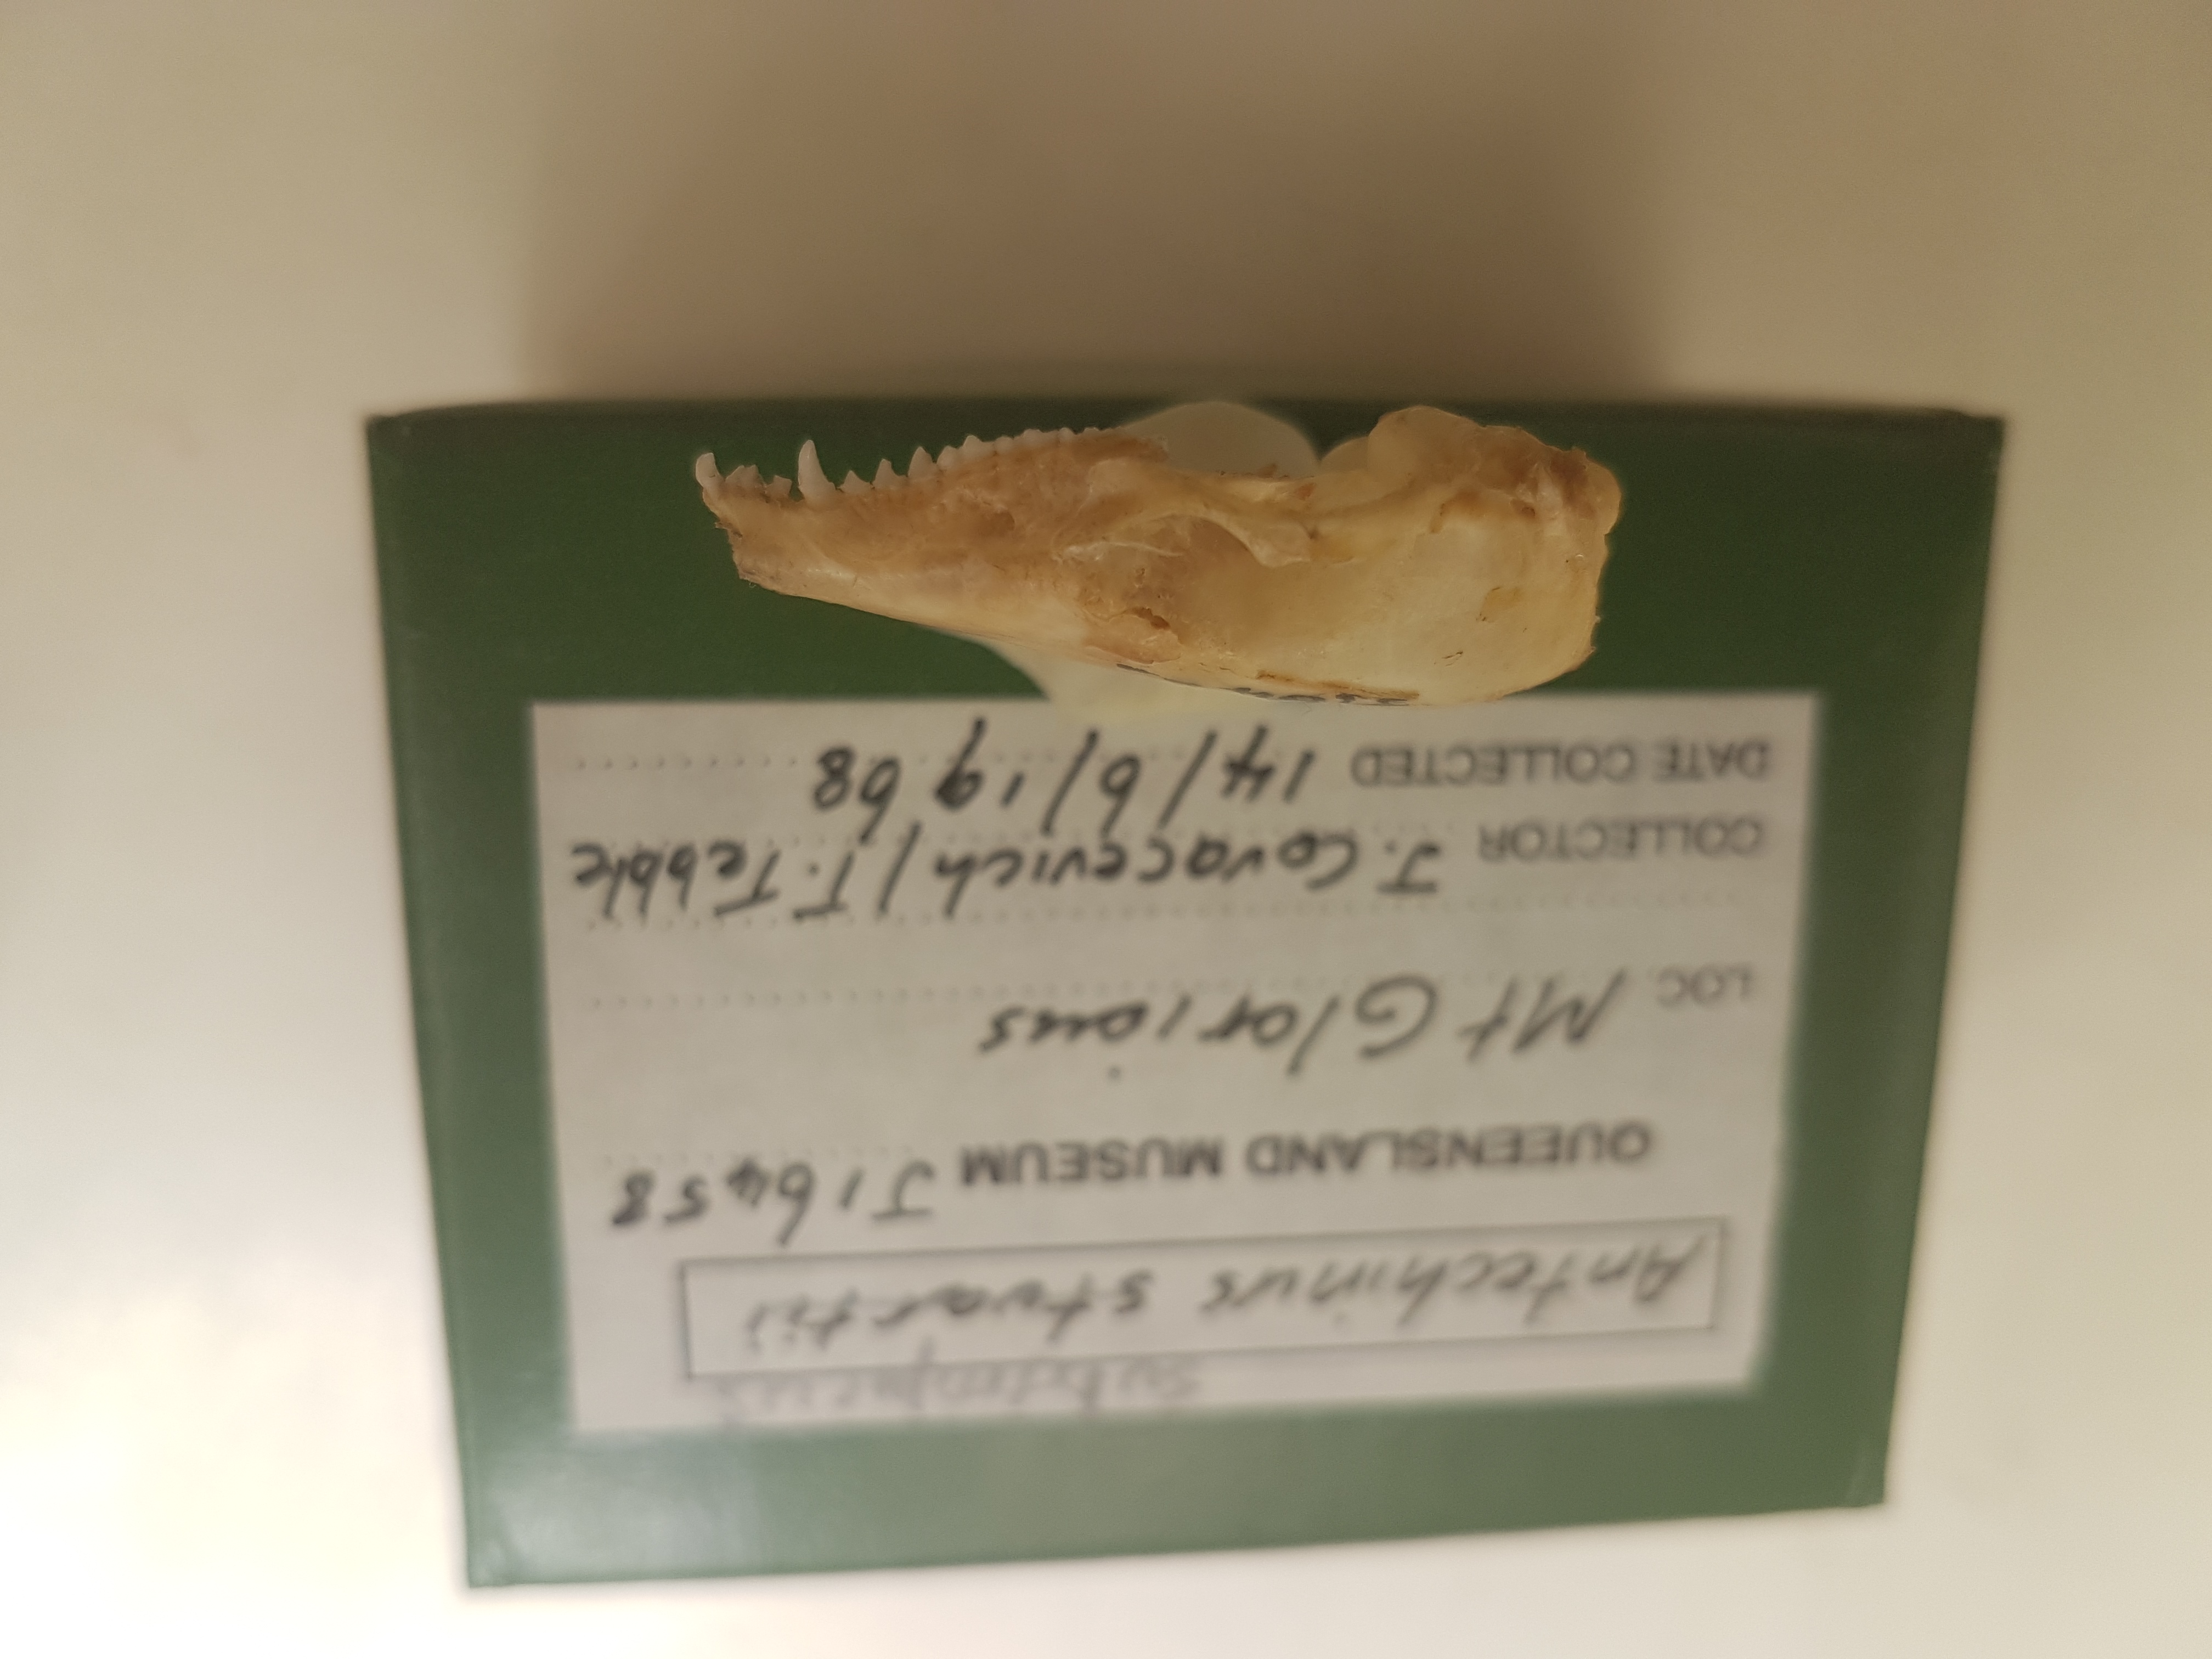 subtropicus
Antechinus stuartii
QUEENSLAND MUSEUM J16458
LOC. Mt Glorious
COLLECTOR J. Covacevich / T. Tebble
DATE COLLECTED 14/6/1968